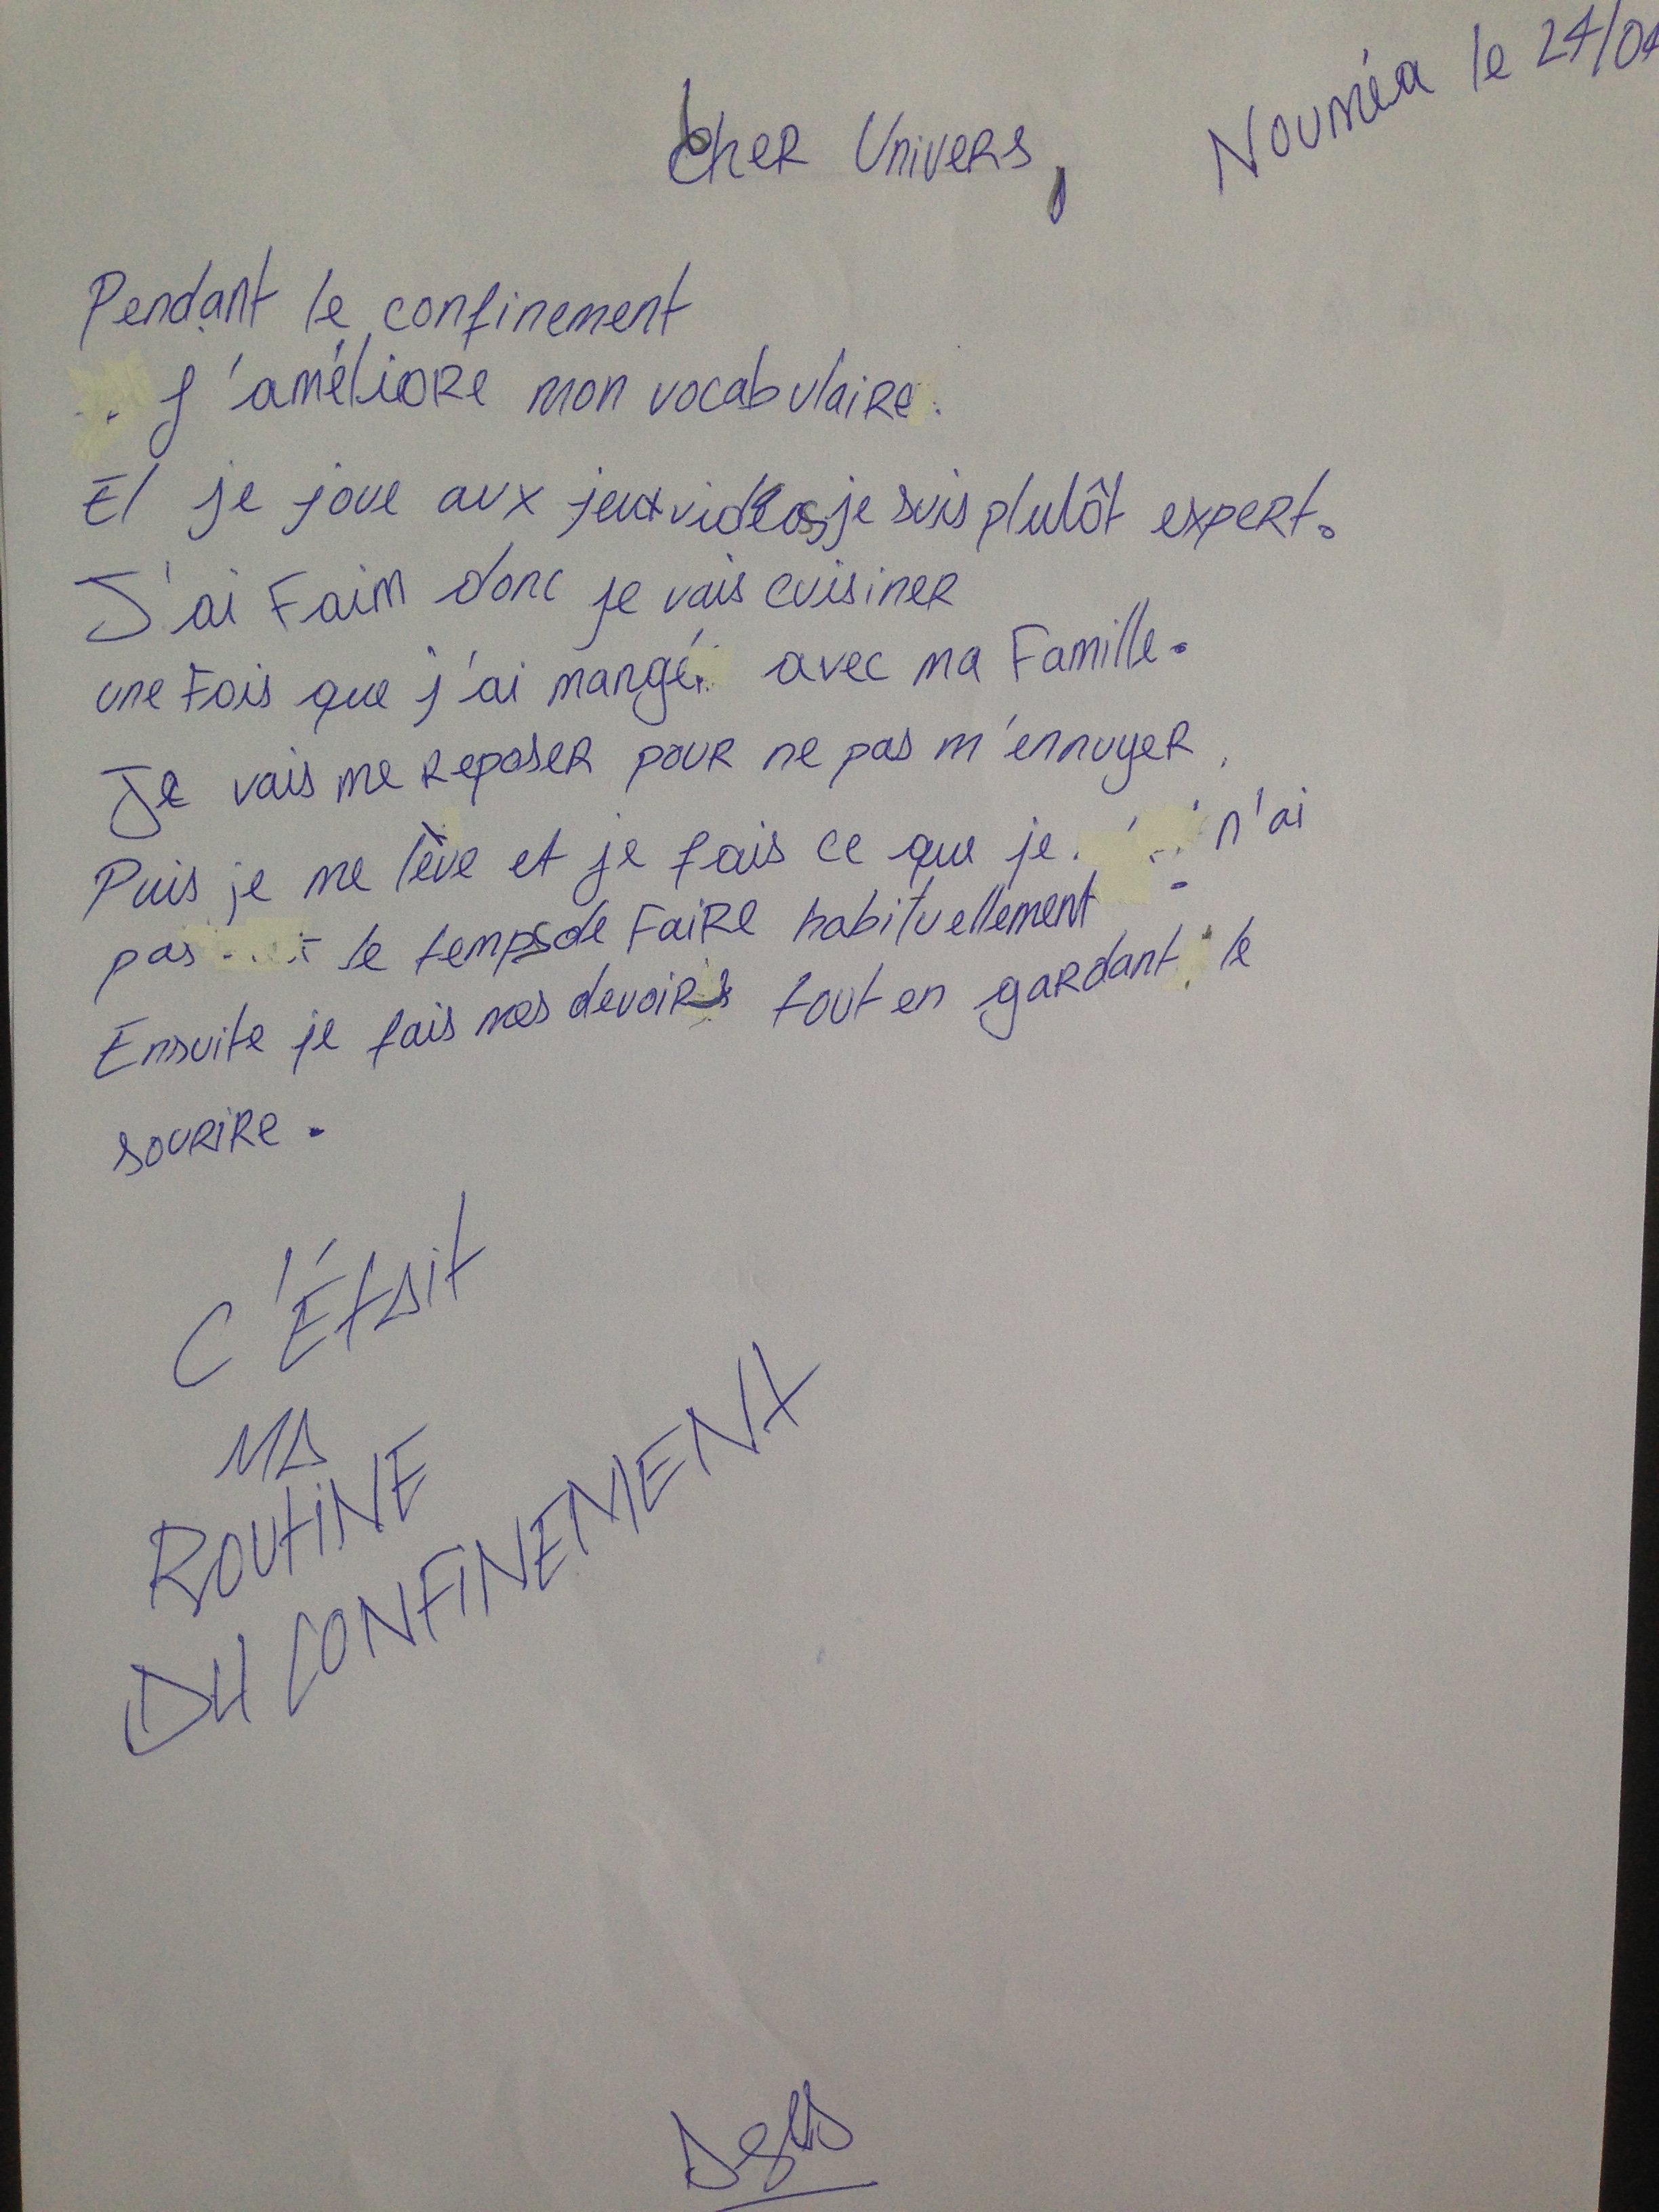 Nouméa le 24/04
Cher Univers,
Pendant le confinement
J'améliore mon vocabulaire.
Et je joue aux jeux vidéos, je suis plutôt expert.
J'ai Faim donc je vais cuisiner
une Fois que j'ai mangé avec ma Famille.
Je vais me reposer pour ne pas m'ennuyer.
Puis je me lève et je fais ce que je n'ai
pas le temps de Faire habituellement.
Ensuite je fais mes devoirs tout en gardant le
sourire.
C'Était
MA
ROUTINE
DU CONFINEMENT